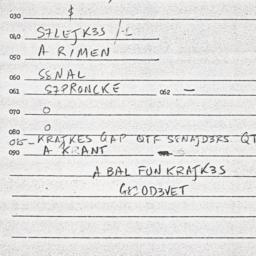 030 $
040 S7LEJK3S /-1
A RIMEN
050
060 SENAL
061 S7PRONCKE 062 –
070 O
080 O
085- KRAJKES GAP QTF SENAJD3RS QT
090 A K ANT
A BAL FUN KRAJK3S